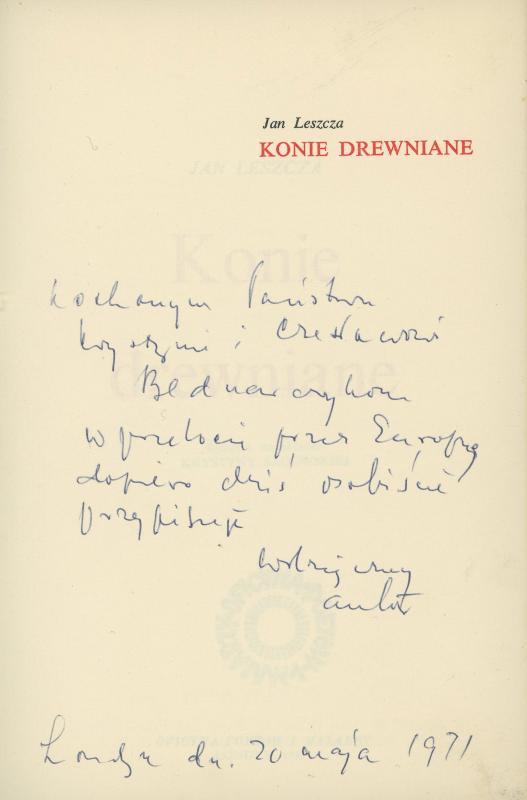 Jan Leszcza
KONIE DREWNIANE
JAN LESZCZA
Konie
drewniane
Kochanym Państwu
Krystynie i Czesławowi
Bednarczykom
w przelocie przez Europę
dopiero dziś osobiście
przypisuje
wdzięczny
autor
Londyn dn. 20 maja 1971